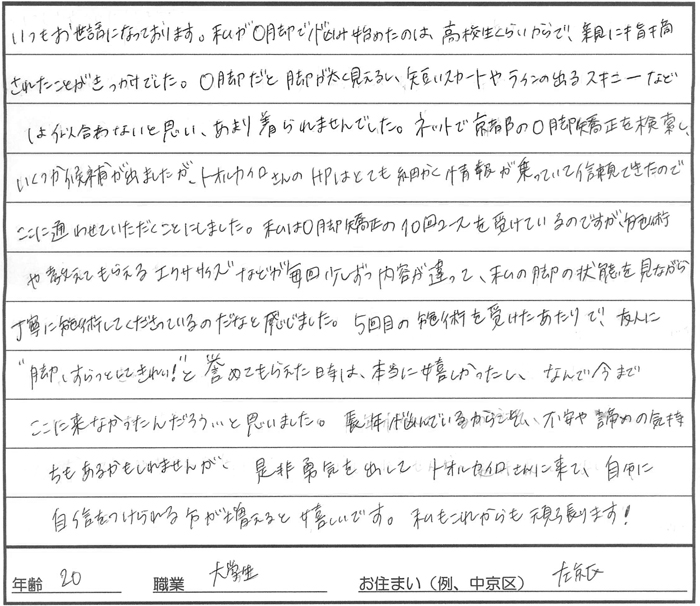 いつもお世話になっております。私がO脚で悩み始めたのは、高校生くらいからで、親に指摘
されたことがきっかけでした。O脚だと脚が太く見えるし、短いスカートやラインの出るスキニーなど
は似合わないと思い、あまり着られませんでした。ネットで京都のO脚矯正を検索し、
いくつか候補が出ましたが、トオルカイロさんのHPはとても細かく情報が乗っていて信頼できたので
ここに通わせていただくことにしました。私はO脚矯正の10回コースを受けているのですが、施術
や教えてもらえるエクササイズなどが毎回少しずつ内容が違って、私の脚の状態を見ながら
丁寧に施術してくださっているのだなと感じました。5回目の施術を受けたあたりで、友人に
"脚、すらっとしてきれい!"と誉めてもらえた時は、本当に嬉しかったし、なんで今まで
ここに来なかったんだろう…と思いました。長年悩んでいるからこそ、不安や諦めの気持
ちもあるかもしれませんが、是非勇気を出してトオルカイロさんに来て、自分に
自信をつけられる方が増えると嬉しいです。私もこれからも頑張ります!
年齢 20 職業 大学生 お住まい(例、中京区) 左京区